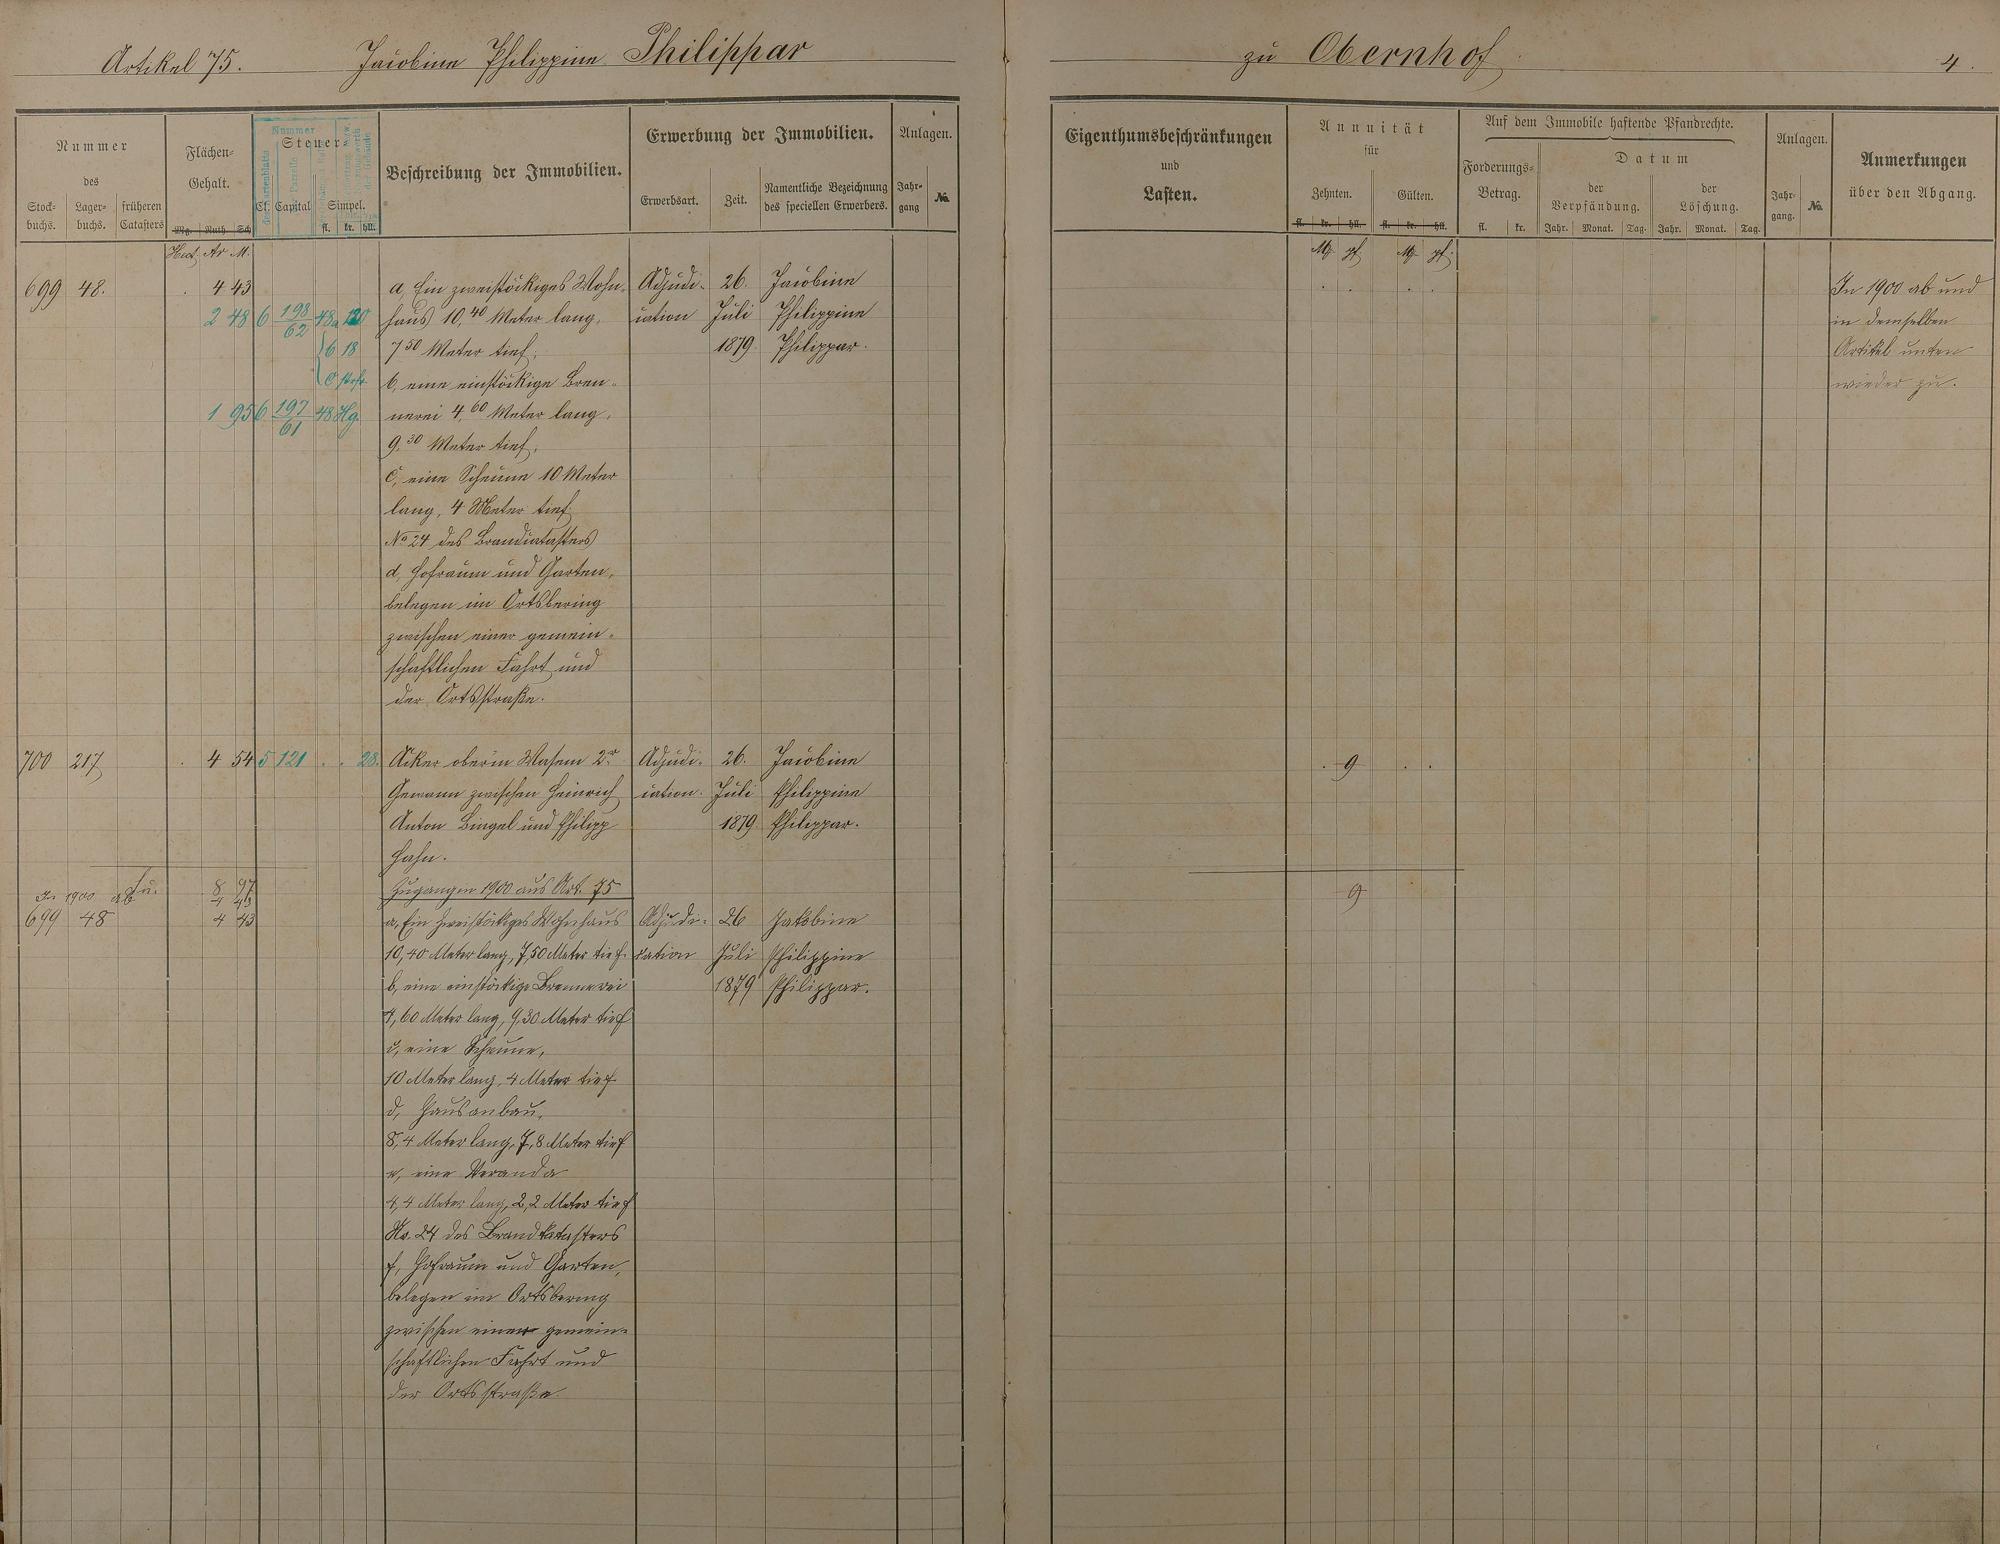 Artikel 75. Jacobine Philippine Philippar zu Obernhof 4.
Nummer
des
Stock-
buchs.
Lager-
buchs.
früheren
Catasters
Flächen-
Gehalt.
Mg. Ruth Sch
Hect. Ar M.
Nummer
Steuer
Parzelle
Cl. Capital Simpel.
fl. kr. hll.
Beschreibung der Immobilien.
Erwerbung der Immobilien.
Erwerbsart.
Zeit.
Namentliche Bezeichnung
des speciellen Erwerbers.
Anlagen.
Jahr-
gang
No.
Eigenthumsbeschränkungen
und
Lasten.
Annuität
für
Zehnten. Gülten.
fl. kr. hll. fl. kr. hll.
M. pf. M. pf.
Auf dem Immobile haftende Pfandrechte.
Forderungs-
Betrag.
fl. kr.
Datum
der
Verpfändung.
Jahr. Monat. Tag.
der
Löschung.
Jahr. Monat. Tag.
Anlagen.
Jahr-
gang.
No.
Anmerkungen
über den Abgang.
699 48. 4 43 a, Ein zweistöckiges Wohn- Adjudi- 26. Jacobine In 1900 ab und
2 48 6 198/62 48 a 120 haus 10,40 Meter lang, cation Juli Philippine in demselben
b 18 7 50 Meter tief, 1879. Philippar. Artikel unten
c b, eine einstöckige Bren- wieder zu.
1 95 6 197/61 48 Hg. nerei 4,60 Meter lang,
9,30 Meter tief,
c, eine Scheune 10 Meter
lang, 4 Meter tief
No 24 des Brandcatasters
d, Hofraum und Garten,
belegen im Ortsbering
zwischen einer gemein-
schaftlichen Fahrt und
der Ortsstraße.
700 217 4 54 5 121 . . 28. Acker oberm Wasem 2r Adjudi- 26. Jacobine . 9 . .
Gewann zwischen Heinrich cation. Juli Philippine
Anton Bingel und Philipp 1879. Philippar.
Hahn.
Su. 8 97 Zugangen 1900 aus Art. 75 9
In 1900 ab 4 43
699 48 4 43 a, Ein zweistöckiges Wohnhaus Adjudi- 26 Jakobine
10,40 Meter lang, 7,50 Meter tief. cation Juli Philippine
b, eine einstöckige Brennerei 1879 Philippar.
4,60 Meter lang, 9,30 Meter tief
c, eine Scheune,
10 Meter lang, 4 Meter tief
d, Hausanbau,
8,4 Meter lang, 7,8 Meter tief
e, eine Veranda
4,4 Meter lang, 2,2 Meter tief
No. 24 des Brandkatasters
f, Hofraum und Garten,
belegen im Ortsbering
zwischen einer gemein-
schaftlichen Fahrt und
der Ortsstraße